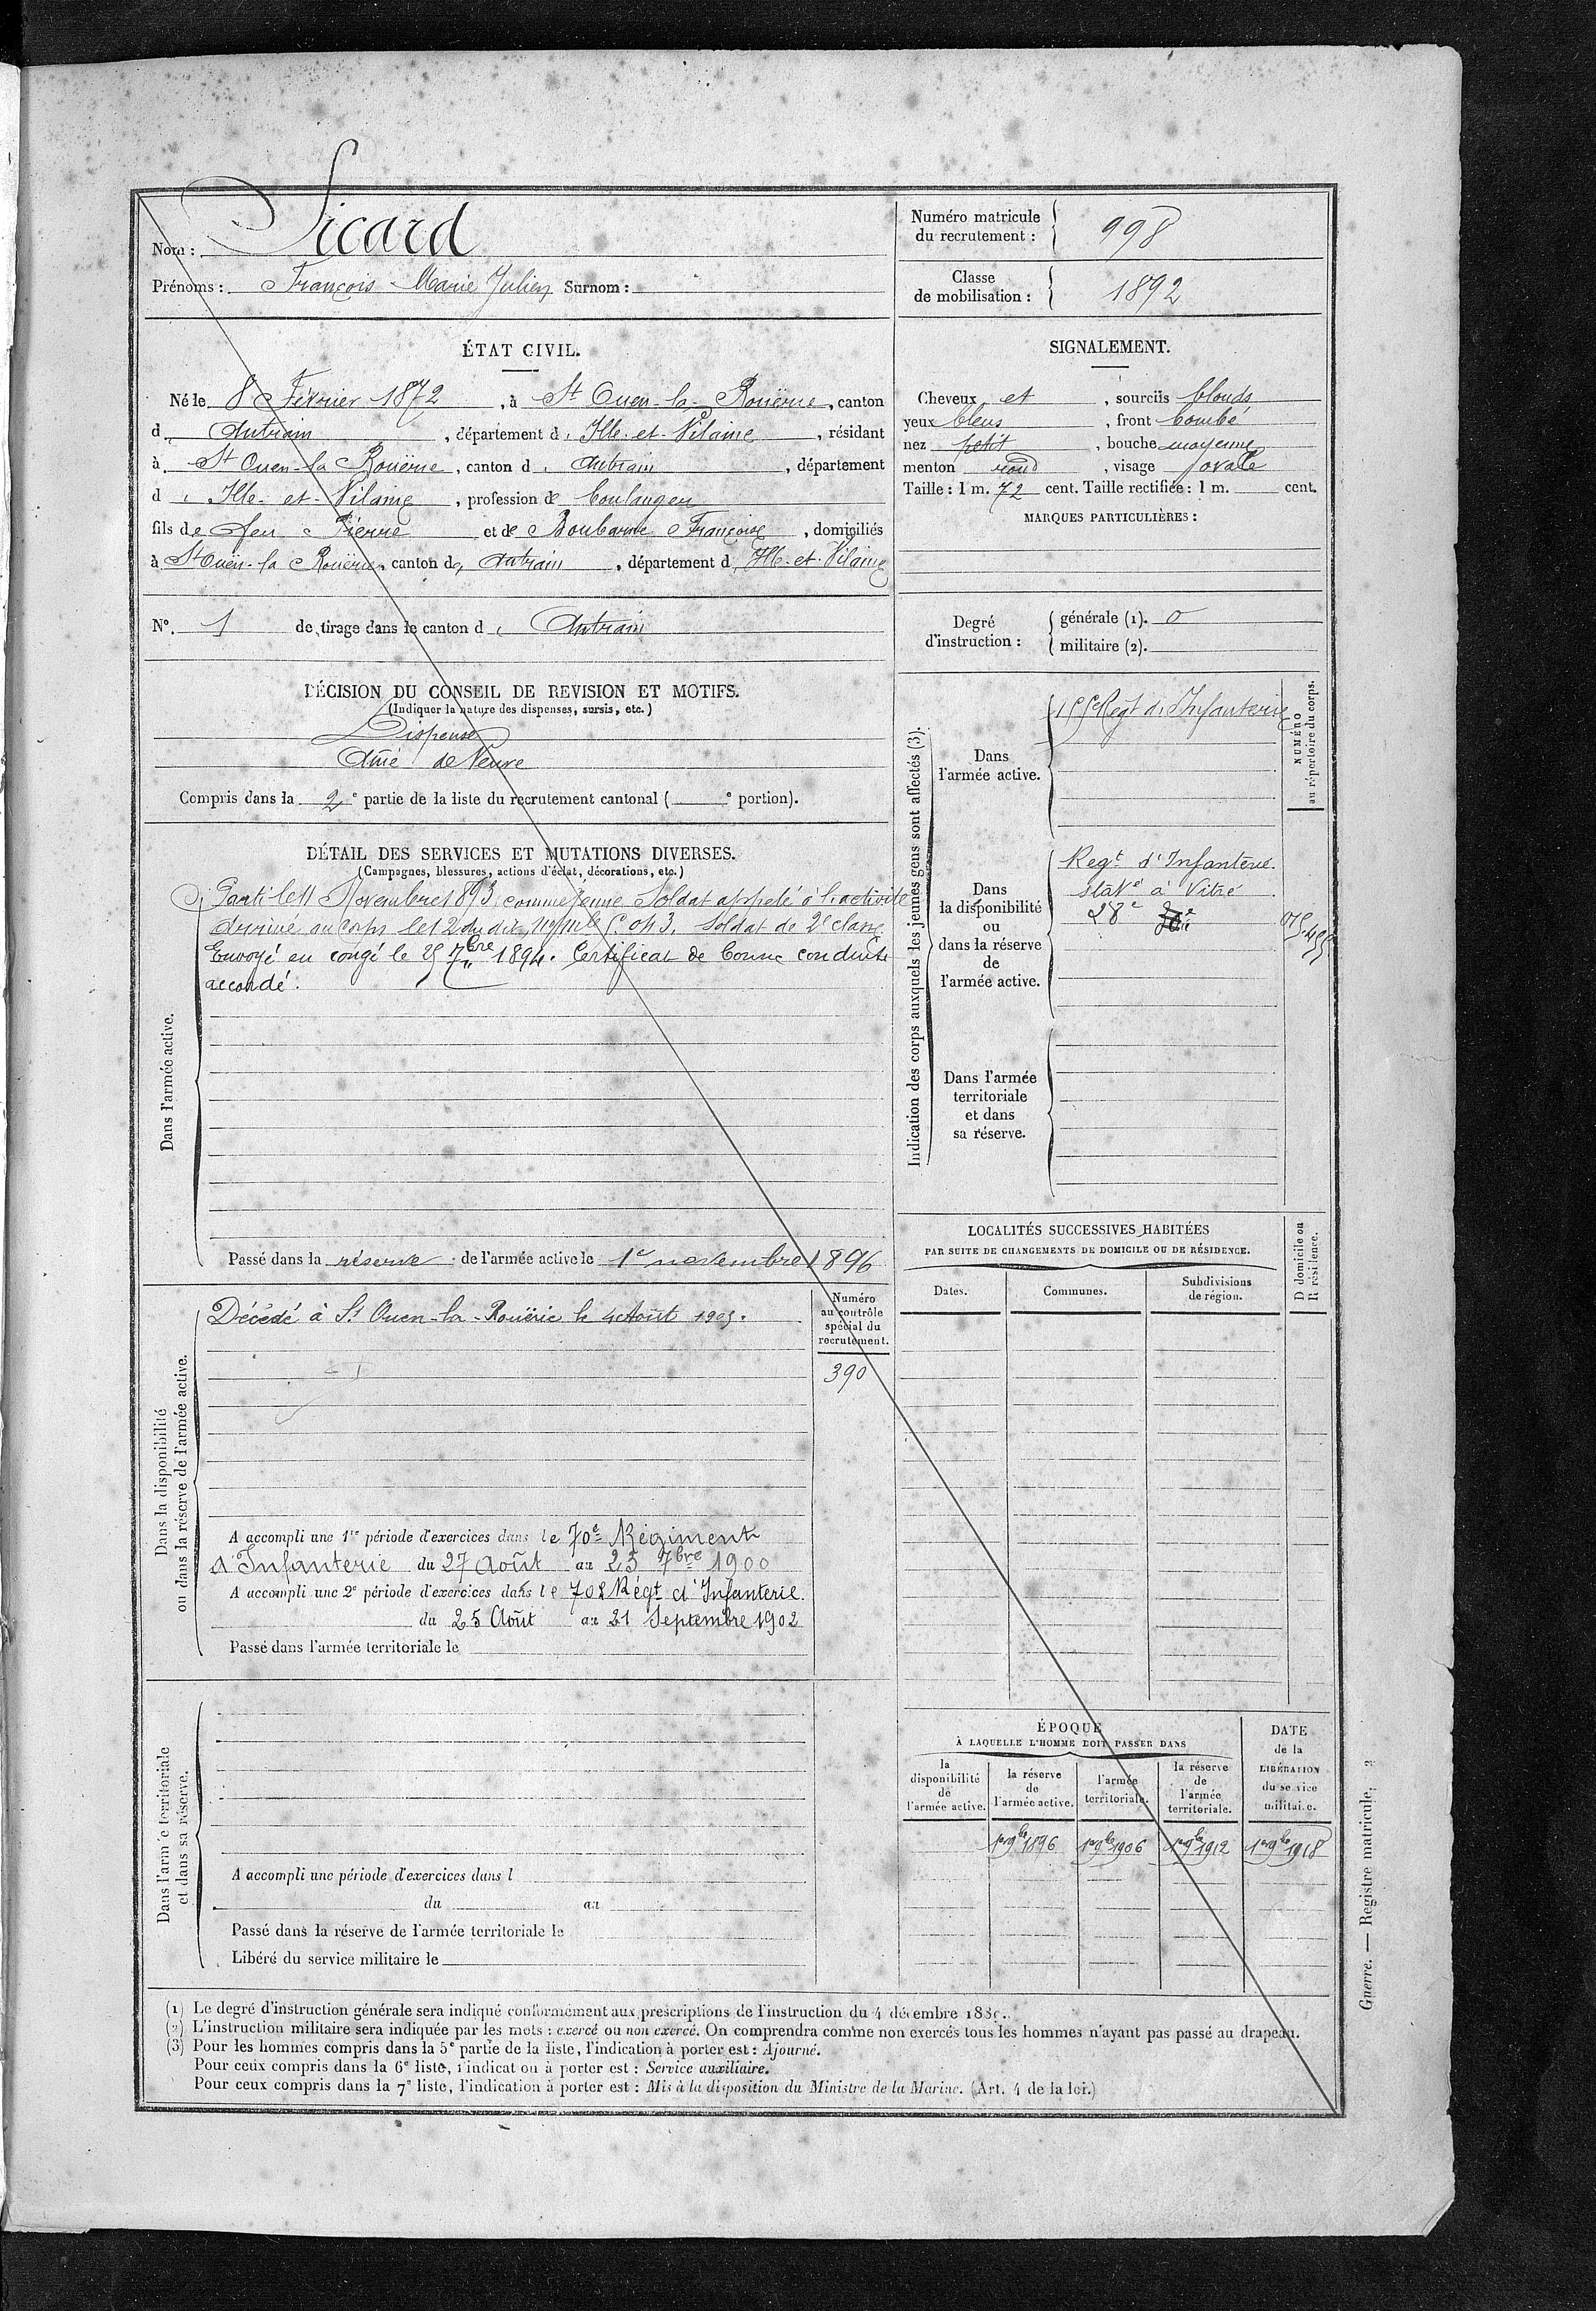 Nom : Sicard
Prénoms : François Marie Julien Surnom :
Numéro matricule du recrutement : 998
Classe de mobilisation : 1892
ÉTAT CIVIL.
Né le 8 Février 1872, à St Ouen-la-Rouërie, canton
d Antrain, département d Ille-et-Vilaine, résidant
à St Ouen-la Rouërie, canton d Antrain, département
d Ille-et-Vilaine, profession de boulanger
fils de feu Pierre et de Françoise, domiciliés
à St Ouen-la Rouërie, canton de Antrain, département d Ille-et-Vilaine
N° 1 de tirage dans le canton d Antrain
SIGNALEMENT.
Cheveux et, sourcils blonds
yeux bleus, front bombé
nez petit, bouche moyenne
menton rond, visage ovale
Taille : 1 m. 72 cent. Taille rectifiée : 1 m. cent.
MARQUES PARTICULIÈRES :
Degré d'instruction :
générale (1). 0
militaire (2).
DÉCISION DU CONSEIL DE REVISION ET MOTIFS.
(Indiquer la nature des dispenses, sursis, etc.)
Dispensé
Ainé de Veuve
Compris dans la 2e partie de la liste du recrutement cantonal ( e portion).
DÉTAIL DES SERVICES ET MUTATIONS DIVERSES.
(Campagnes, blessures, actions d'éclat, décorations, etc.)
Dans l'armée active.
Parti le 11 Novembre 1893, comme jeune Soldat appelé à l'activité
Arrivé au Corps le 12 du dit, Soldat de 2e classe
Envoyé en congé le 25 7bre 1894. Certificat de bonne conduite
accordé.
Passé dans la réserve de l'armée active le 1er novembre 1896
Dans la disponibilité ou dans la réserve de l'armée active.
Décédé à St Ouen-la-Rouërie le 4 Août 1905.
Numéro au contrôle spécial du recrutement.
390
A accompli une 1re période d'exercices dans le 70e Régiment
d'Infanterie du 27 Août au 23 7bre 1900
A accompli une 2e période d'exercices dans le 70e Régt d'Infanterie.
du 25 Août au 21 Septembre 1902
Passé dans l'armée territoriale le
Dans l'armée territoriale et dans sa réserve.
A accompli une période d'exercices dans l
du au
Passé dans la réserve de l'armée territoriale le
Libéré du service militaire le
Indication des corps auxquels les jeunes gens sont affectés (3).
NUMÉRO au répertoire du corps.
Dans l'armée active.
Régt d'Infanterie
Dans la disponibilité ou dans la réserve de l'armée active.
Regt d'Infanterie.
staté à Vitré
28e
Dans l'armée territoriale et dans sa réserve.
LOCALITÉS SUCCESSIVES HABITÉES
PAR SUITE DE CHANGEMENTS DE DOMICILE OU DE RÉSIDENCE.
Dates. Communes. Subdivisions de région. D domicile ou R résidence.
ÉPOQUE
À LAQUELLE L'HOMME DOIT PASSER DANS
la disponibilité de l'armée active.
la réserve de l'armée active.
l'armée territoriale.
la réserve de l'armée territoriale.
DATE de la LIBÉRATION du service militaire.
1er 9bre 1896 1er 9bre 1906 1er 9bre 1912 1er 9bre 1918
Guerre. — Registre matricule.
(1) Le degré d'instruction générale sera indiqué conformément aux prescriptions de l'instruction du 4 décembre
(2) L'instruction militaire sera indiquée par les mots : exercé ou non exercé. On comprendra comme non exercés tous les hommes n'ayant pas passé au drapeau.
(3) Pour les hommes compris dans la 5e partie de la liste, l'indication à porter est : Ajourné.
Pour ceux compris dans la 6e liste, l'indication à porter est : Service auxiliaire.
Pour ceux compris dans la 7e liste, l'indication à porter est : Mis à la disposition du Ministre de la Marine. (Art. 4 de la loi.)